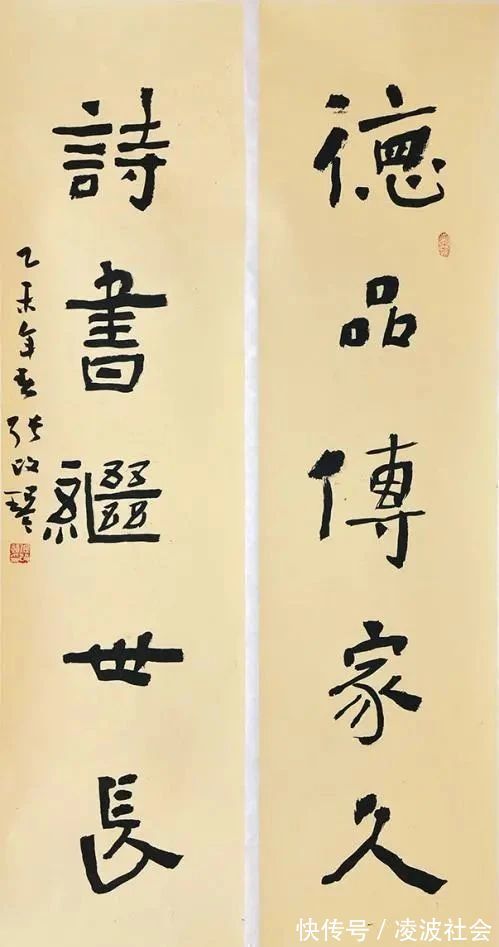 德品傳家久
詩書繼世長
乙未年春 张政
快传号／凌波社会